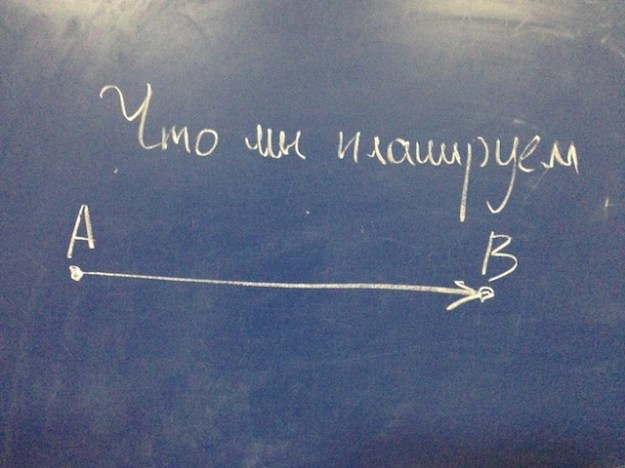 Что мы планируем
A
B